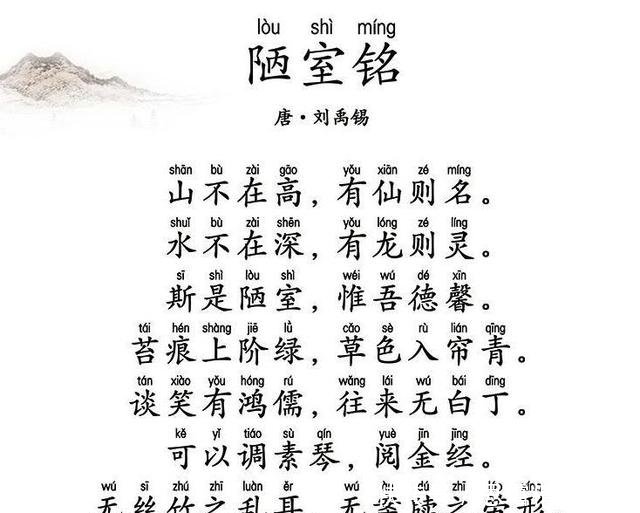 lòu shì míng
陋室铭
唐·刘禹锡
shān bù zài gāo yǒu xiān zé míng
山不在高，有仙则名。
shuǐ bù zài shēn yǒu lóng zé líng
水不在深，有龙则灵。
sī shì lòu shì wéi wú dé xīn
斯是陋室，惟吾德馨。
tái hén shàng jiē lǜ cǎo sè rù lián qīng
苔痕上阶绿，草色入帘青。
tán xiào yǒu hóng rú wǎng lái wú bái dīng
谈笑有鸿儒，往来无白丁。
kě yǐ tiáo sù qín yuè jīn jīng
可以调素琴，阅金经。
wú sī zhú zhī luàn ěr wú àn dú zhī xíng
无丝竹之乱耳，无案牍之劳形。